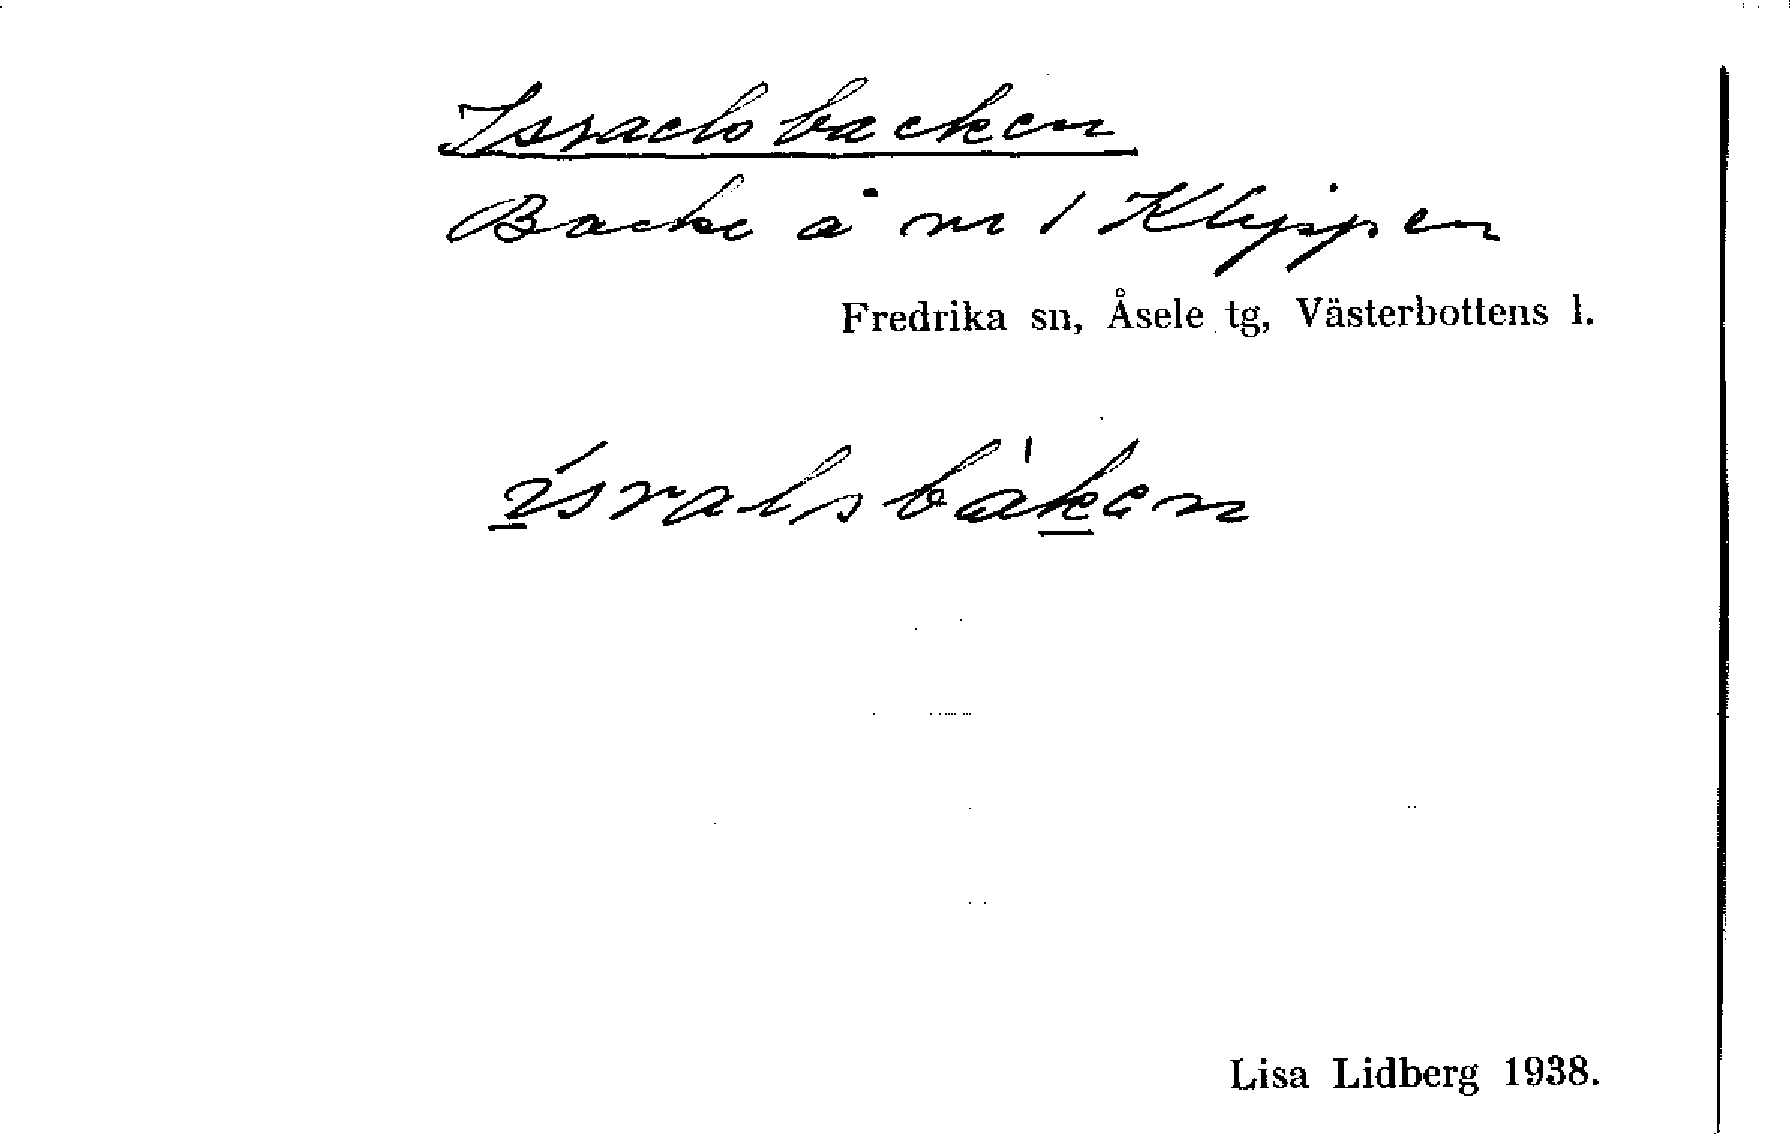 Israelsbacken
Backe å nr 1 Klippen
Fredrika sn, Åsele tg, Västerbottens l.
ísralsbàken
Lisa Lidberg 1938.